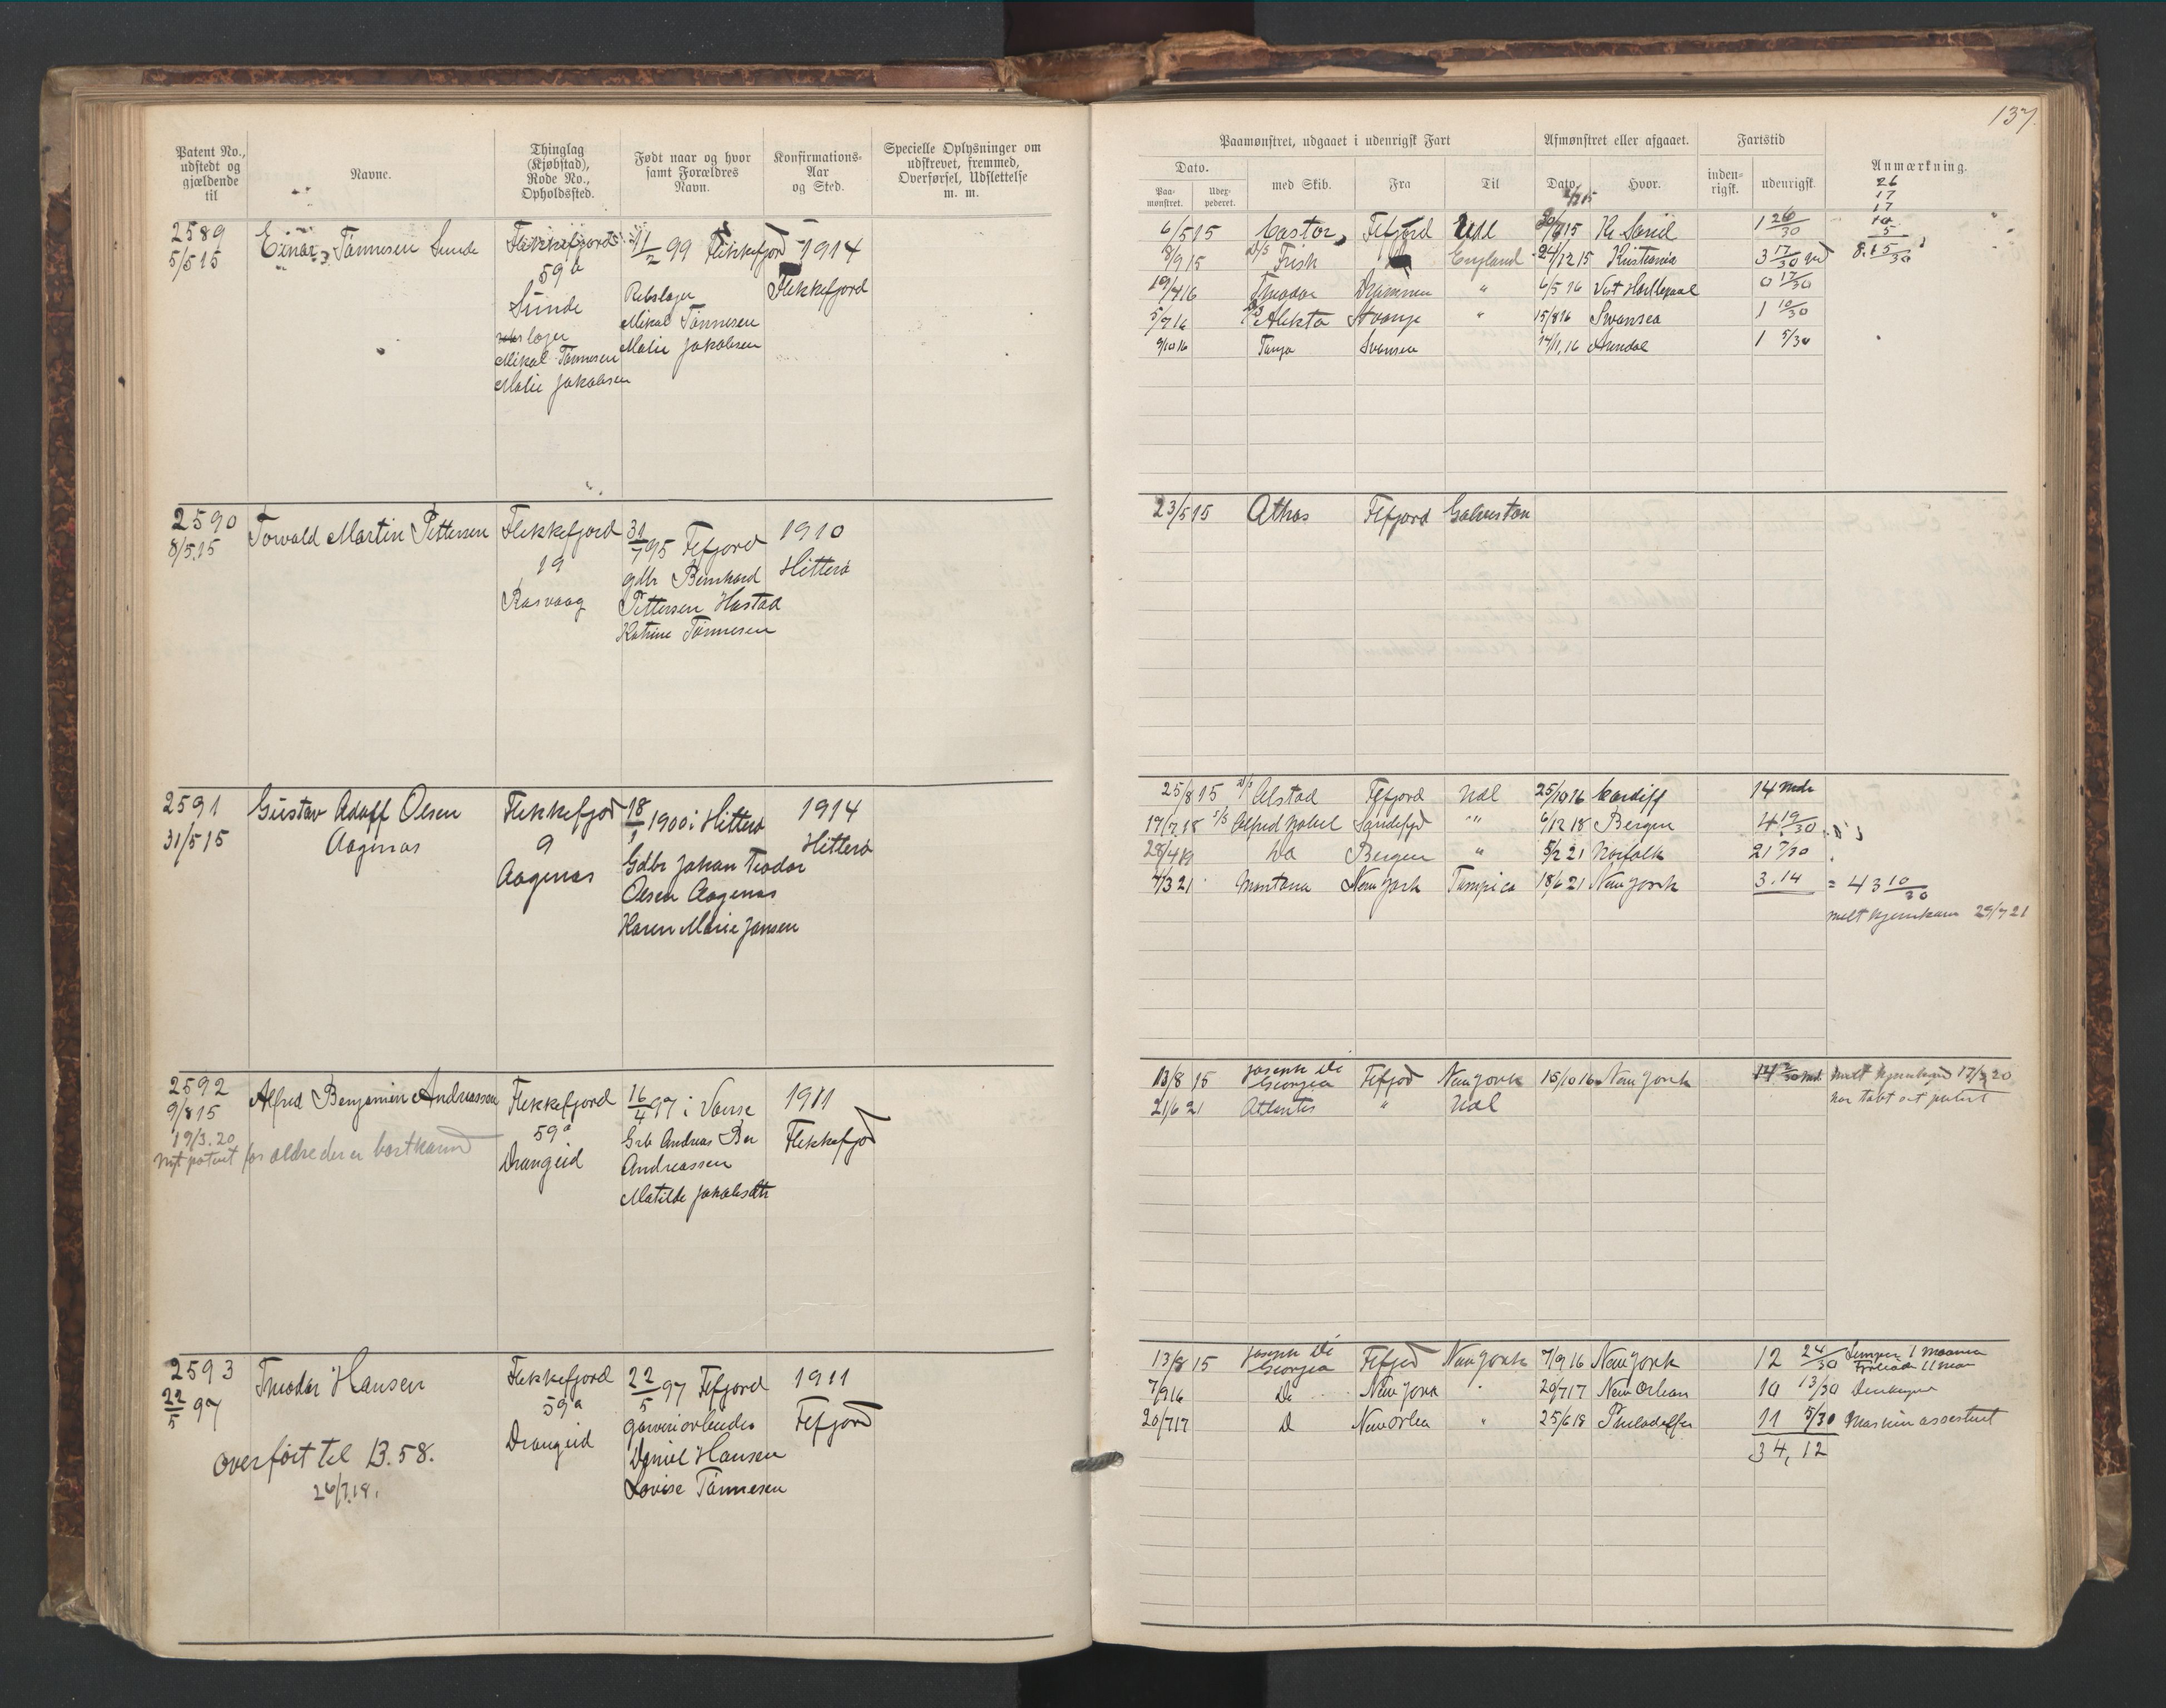 137
Patent No., udstedt og gjældende til
Navne.
Thinglag (Kjøbstad), Rode No., Opholdssted.
Født naar og hvor samt Forældres Navn.
Konfirmations-Aar og Sted.
Specielle Oplysninger om udskrevet, fremmed, Overførsel, Udslettelse m. m.
Paamønstret, udgaaet i udenrigsk Fart
Dato.
Paamønstret.
med Skib.
Fra
Til
Afmønstret eller afgaaet.
Dato
Hvor.
Fartstid
indenrigsk.
udenrigsk.
Anmærkning.
2589
5/5 15
Einar Tønnesen Sunde
Flekkefjord
59a
Sunde
Mikal Tønnesen
Malie Jakobsen
11/2 99 Flekkefjord
Rebslager
Mikal Tønnesen
Malie Jakobsen
1914
Flekkefjord
6/5 15 Castor Fefjord Udl 15 Kr Sand 1 26/30
8/9 15 D/S Frisk England 24/12 15 Kristiania 3 17/30
19/4 16 Theodor Drammen " 6/5 16 0 17/30
5/7 16 Alekto " 15/8 16 Swansea 1 10/30
9/10 16 14/11 16 Arendal 1 5/30
26
17
17
10
5
8.15/30
2590
8/5.15
Torvald Martin Pettersen
Flekkefjord
19
Rasvaag
31/7 95 Fefjord
gdbr Bernhard
Pettersen Hastad
Katrine Tønnesen
1910
Hitterø
23/5 15 Athos Fefjord Galveston
2591
31/5 15
Gustav Adolf Olsen
Aagenas
Flekkefjord
9
Aagenas
18/1 1900 i Hitterø
Gdbr Johan Teodor
Olsen Aagenas
Karen Marie Jansen
1914
Hitterø
25/8 15 D/S Alstad Fefjord Udl 25/10 16 Cardiff 14 mdr
19/7 18 S/S Alfred Nobel Sandefjd " 6/12 18 Bergen 4 19/30
28/4 19 Do Bergen " 5/2 21 Norfolk 21 7/30
4/3 21 Montana New York Tampico 18/6 21 New York 3.14 = 43 10/30
melt hjemkom 29/7 21
2592
9/8 15
19/3.20
nyt patent for ældre der er bortkomd
Alfred Benjamin Andreassen
Flekkefjord
59a
Drangeid
16/4 97 i Vanse
Grb Andreas Ber
Andreassen
Matilde Jakobsdtr
1911
Flekkefjod
13/8 15 Joseph Di Georgia Fefjod New York 15/10 16 New York
21/6 21 Atlantis " Udl
17/3 20
har tabt sit patent
2593
22/5 97
Theodor Hansen
overført til B.58.
26/7.18.
Flekkefjord
59a
Drangeid
22/5 97 Fefjord
garveriarbeider
Daniel Hansen
Lovise Tønnesen
1911
Fefjord
13/8 15 Joseph Di Georgia Fefjod New York 7/9 16 New York 12 24/30 Lemper 1 maaned
Fyrbøder 11 mdr
7/9 16 Do New York " 20/7 17 New Orlean 10 13/30 Donkeymd
20/7 17 D New Orlea " 25/6 18 Philadelfia 11 5/30 Maskinassestent
34,12